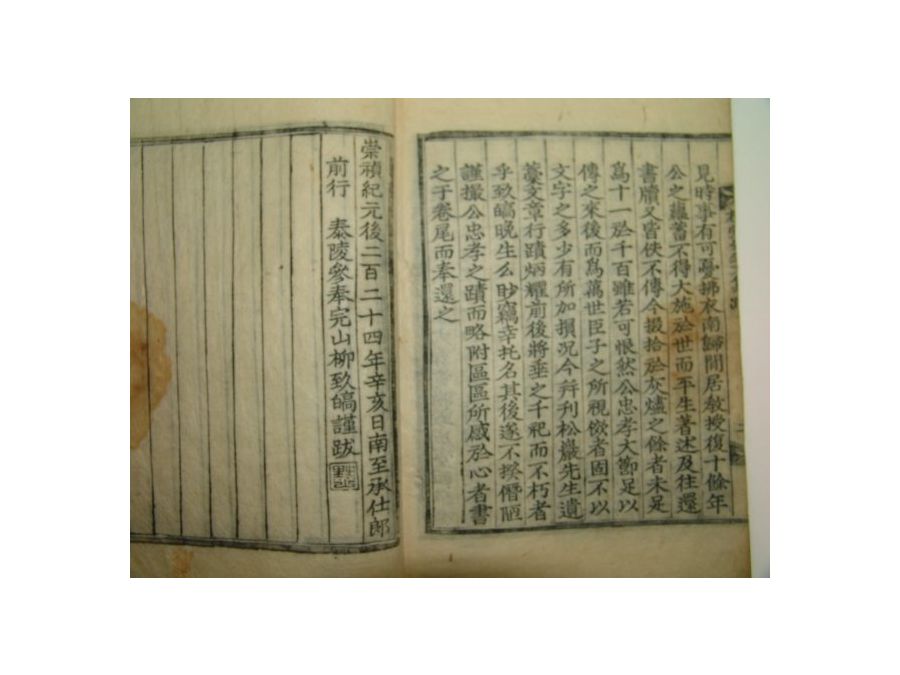 見時事有可憂拂衣南歸閒居敎授復十餘年
公之蘊蓄不得大施於世而平生著述及往還
書牘又皆佚不傳今掇拾於灰燼之餘者未足
爲十一於千百雖若可恨然公忠孝大節足以
傳之來後而爲萬世臣子之所視傚者固不以
文字之多少有所加損況今幷刋松巖先生遺
藁文章行蹟炳耀前後將垂之千祀而不朽者
乎致皜晩生么眇竊幸托名其後遂不揆僭陋
謹撮公忠孝之蹟而略附區區所感於心者書
之于卷尾而奉還之
崇禎紀元後二百二十四年辛亥日南至承仕郞
前行 泰陵參奉完山柳致皜謹跋